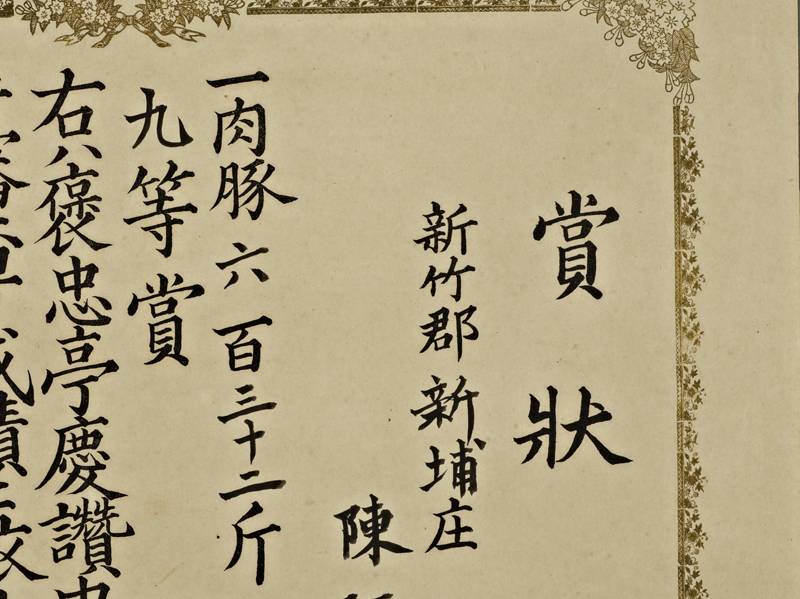 賞狀
新竹郡新埔庄
陳
一肉豚六百三十二斤
九等賞
右ハ褒忠亭慶讚